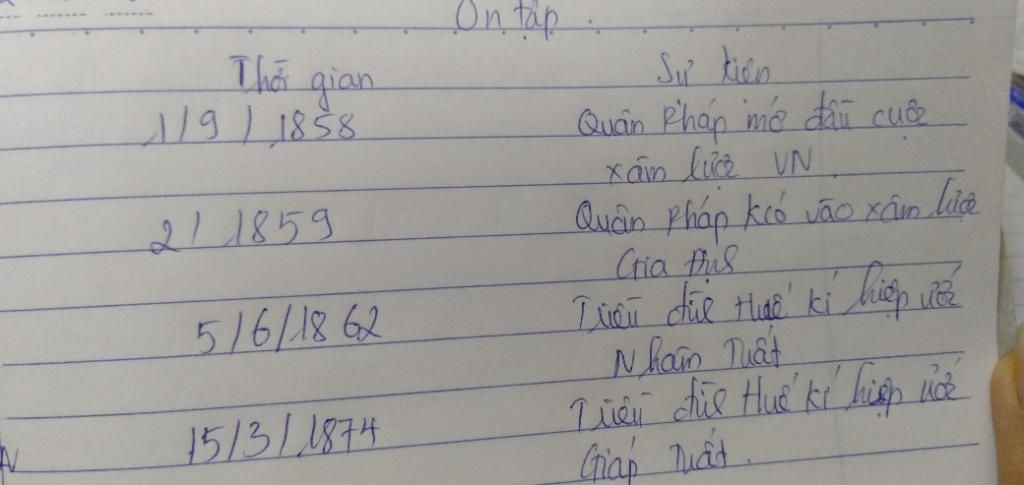 Ôn tập.
Thời gian Sự kiện
1/9/1858 Quân Pháp mở đầu cuộc
xâm lược VN.
2/1859 Quân Pháp kéo vào xâm lược
Gia Định
5/6/1862 Triều đình Huế kí hiệp ước
Nhâm Tuất
15/3/1874 Triều đình Huế kí hiệp ước
Giáp Tuất.